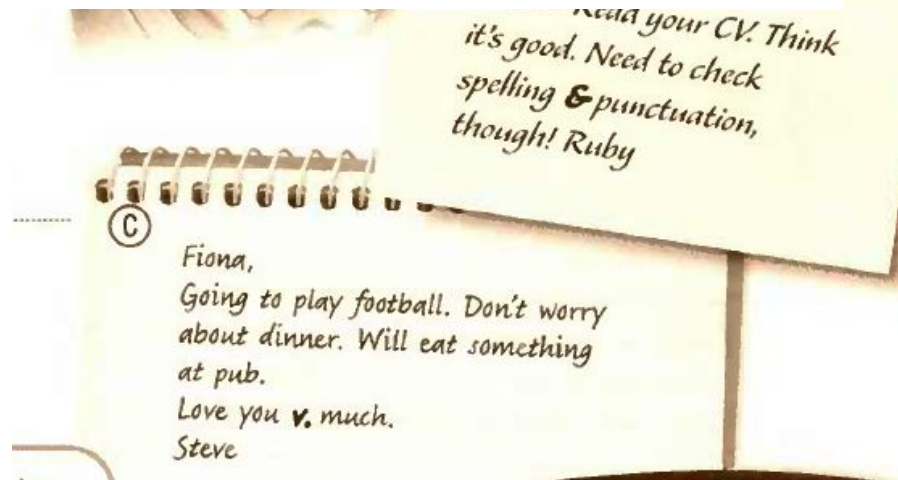 Read your CV. Think
it's good. Need to check
spelling & punctuation,
though! Ruby
C
Fiona,
Going to play football. Don't worry
about dinner. Will eat something
at pub.
Love you v. much.
Steve